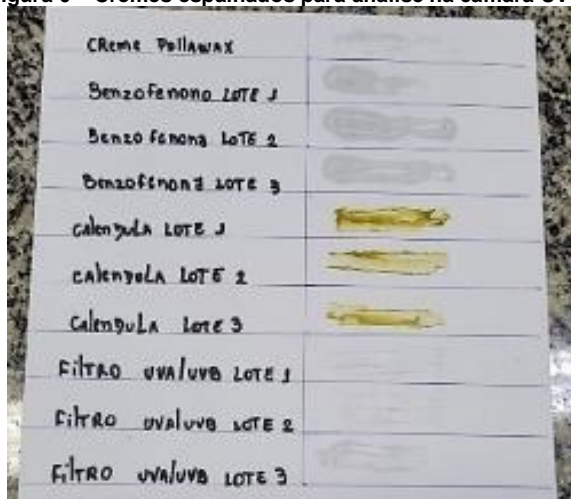 Creme Pollawax
Benzofenona LOTE 1
Benzofenona LOTE 2
Benzofenona LOTE 3
Calendula LOTE 1
CALENDULA LOTE 2
Calendula Lote 3
Filtro UVA/UVB LOTE 1
Filtro UVA/UVB LOTE 2
Filtro UVA/UVB LOTE 3